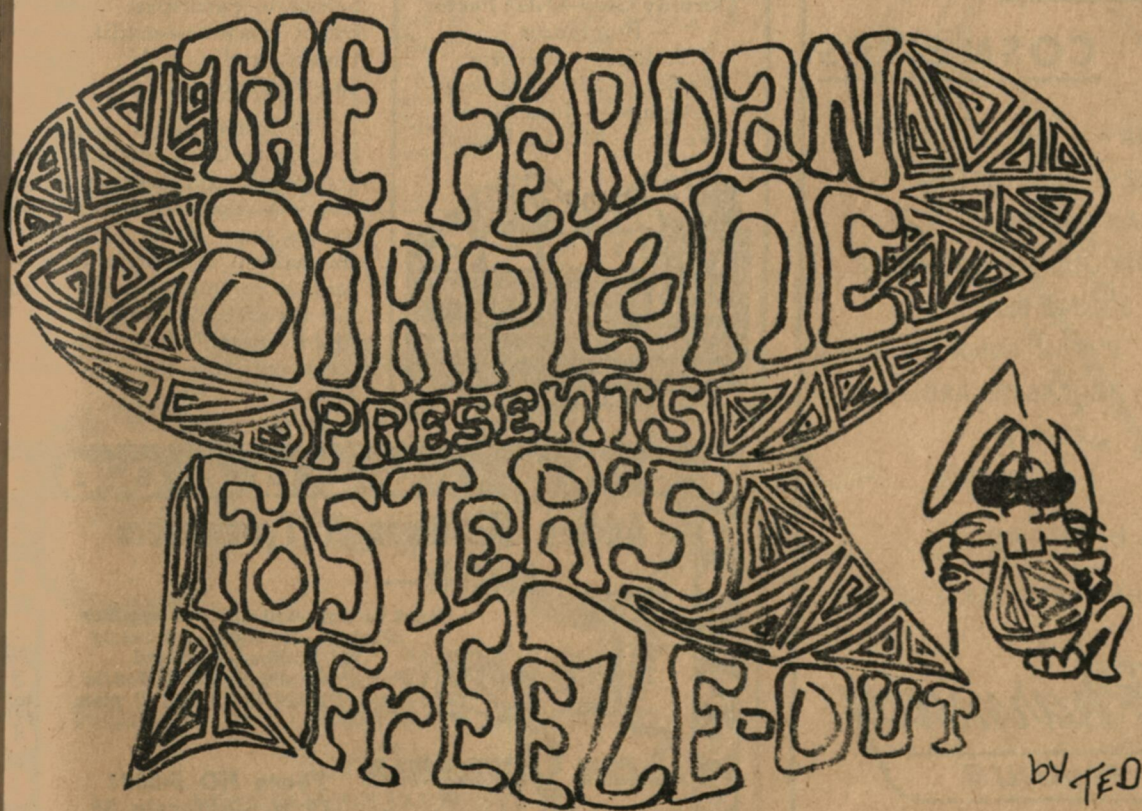 THE FÉRDaN
aiRPLaNE
PRESENTS
FOSTER'S
FrEEZE-OUT
by TED